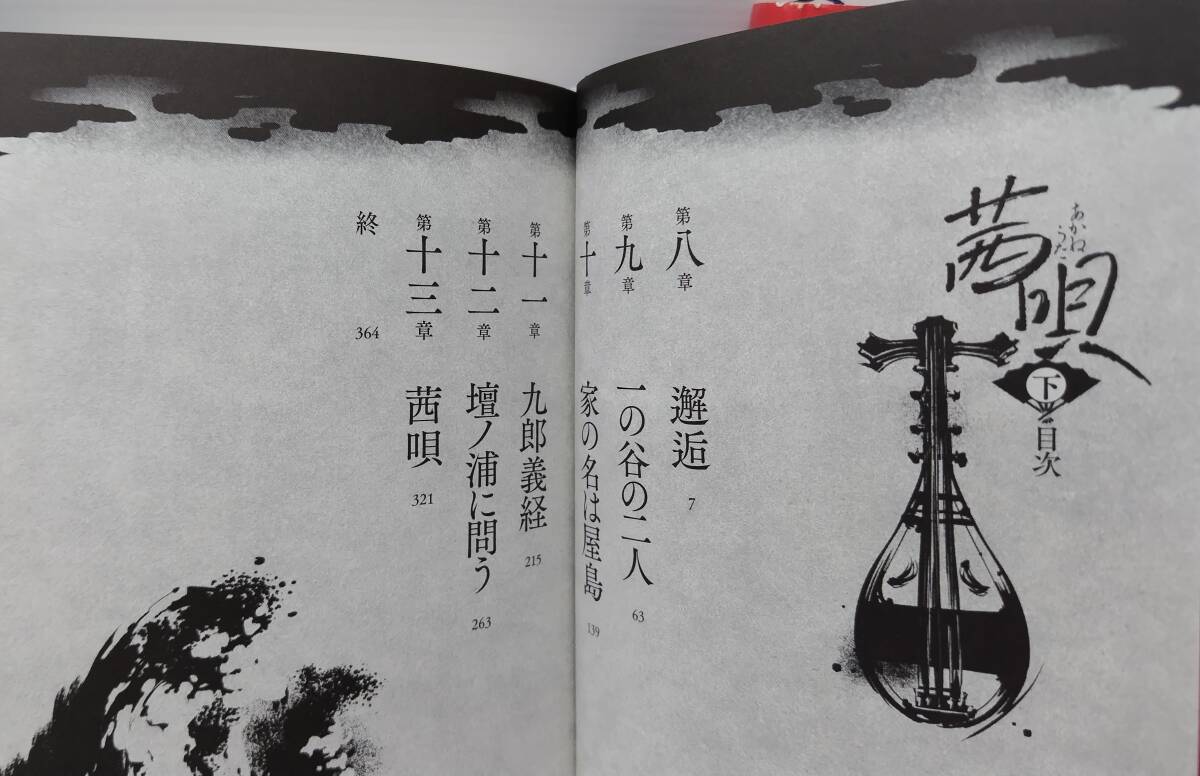 茜唄
あかねうた
下
目次
第八章 邂逅 7
第九章 一の谷の二人 63
第十章 家の名は屋島 139
第十一章 九郎義経 215
第十二章 壇ノ浦に問う 263
第十三章 茜唄 321
終 364